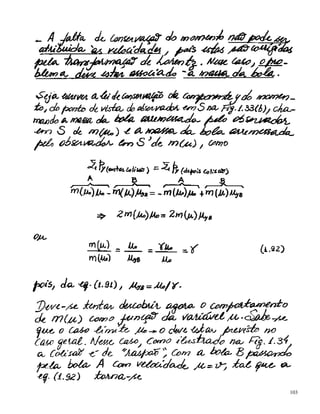 _ A falta de conservação do momento não pode ser
atribuída as velocidades, pois estas são corrigidas
pela transformação de Lorentz. Nesse caso, o pro-
blema deve estar associado à massa da bola.
Seja escrever a lei de conservação da componente y do momen-
to, do ponto de vista do observador em S na Fig. 1.33(b), cha-
mando a massa da bola arremessada pelo observador
em S de m(μ₀) e a massa da bola arremessada
pelo observador em S' de m(μ), como
Σ Py (antes colisão) = Σ Py (depois colisão)
A B A B
m(μ₀)μ₀ - m(μ)μyB = - m(μ₀)μ₀ + m(μ)μyB
⇒ 2m(μ₀)μ₀ = 2m(μ)μyB
ou
m(μ)/m(μ₀) = μ₀/μyB = γμ₀/μ₀ = γ (1.92)
pois, da eq. (1.91), μyB = μ₀/γ.
Deve-se tentar descobrir agora o comportamento
de m(μ) como função da variável μ. Sabe-se
que o caso limite μ₀→0 deve estar previsto no
caso geral. Nesse caso, como ilustrado na Fig. 1.34,
a colisão é de "raspão", com a bola B passando
pela bola A com velocidade μ = v, tal que a
eq. (1.92) torna-se
103